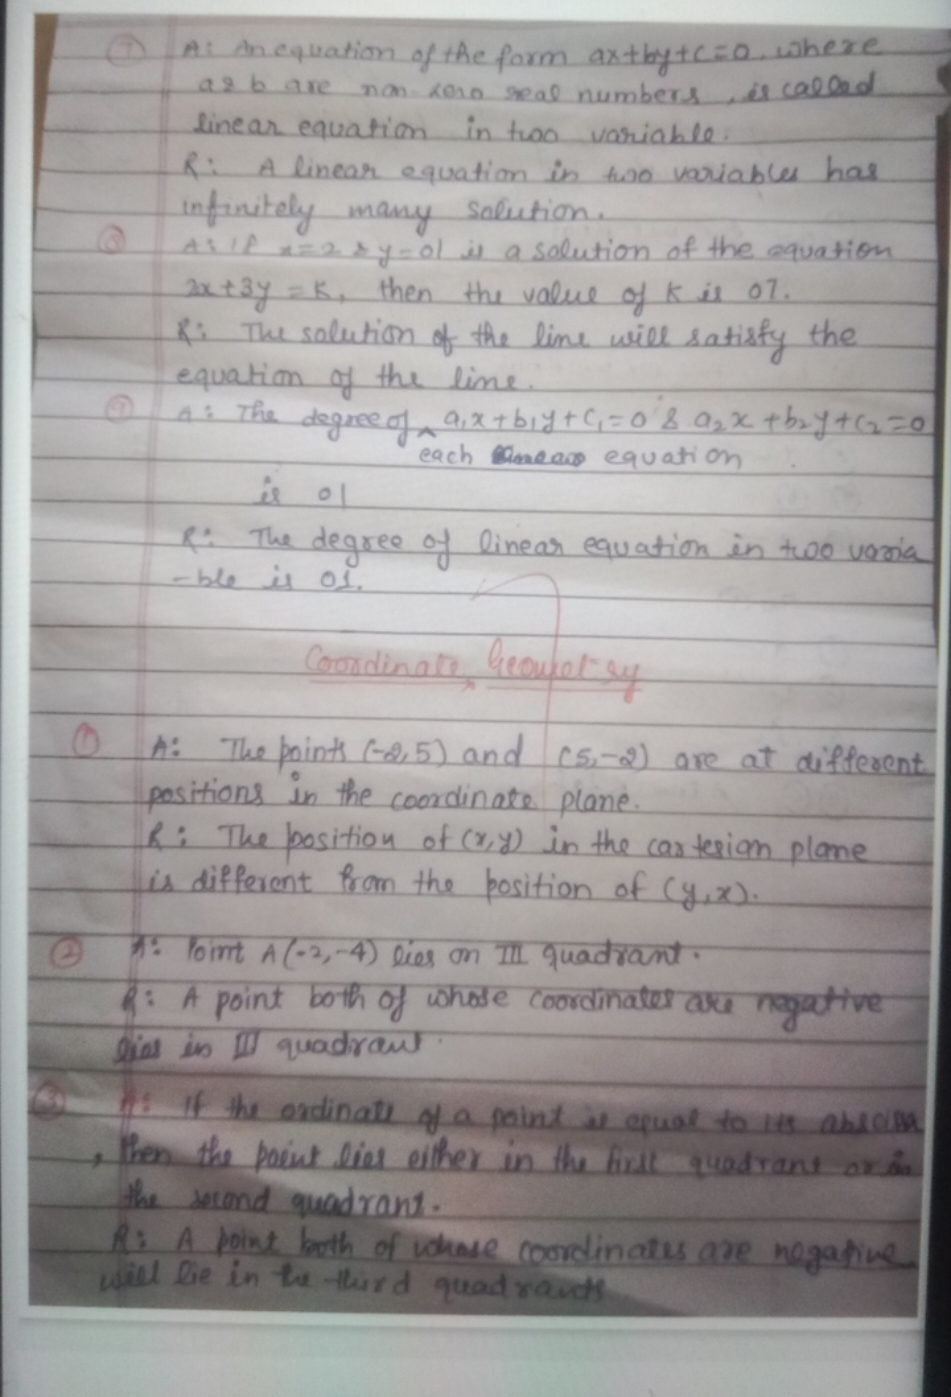 7 A: An equation of the form ax+by+c=0, where
a & b are non zero real numbers, is called
linear equation in two variable.
R: A linear equation in two variables has
infinitely many solution.
8 A: If x=2 & y=01 is a solution of the equation
2x+3y=K, then the value of K is 07.
R: The solution of the line will satisfy the
equation of the line.
9 A: The degree of ^ a₁x+b₁y+c₁=0 & a₂x+b₂y+c₂=0
each equation
is 01
R: The degree of linear equation in two varia
-ble is 01.
Coordinate Geometry
1 A: The points (-2,5) and (5,-2) are at different
positions in the coordinate plane.
R: The position of (x,y) in the cartesian plane
is different from the position of (y,x).
2 A: Point A(-2,-4) lies on III quadrant.
R: A point both of whose coordinates are negative
lies in III quadrant.
3 A: If the ordinate of a point is equal to its abscissa
, then the point lies either in the first quadrant or in
the second quadrant.
R: A point both of whose coordinates are negative
will lie in the third quadrants